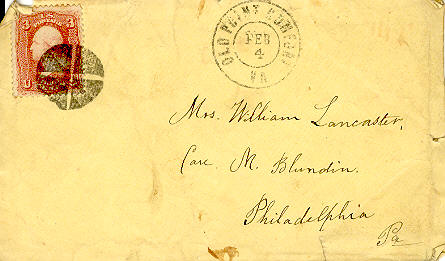 3 3
OLD POINT COMFORT
FEB
4
VA
Mrs. William Lancaster,
Care M. Blundin.
Philadelphia
Pa